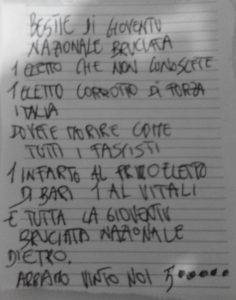 BESTIE DI GIOVENTU
NAZIONALE BRUCIATA
1 ELETTO CHE NON CONOSCETE
1 ELETTO CORROTTO DI FORZA
ITALIA
DOVETE MORIRE COME
TUTTI I FASCISTI
1 INFARTO AL PRIMO ELETTO
DI BARI 1 AL VITALI
E TUTTA LA GIOVENTU
BRUCIATA NAZIONALE
DIETRO.
ABBIAMO VINTO NOI 5